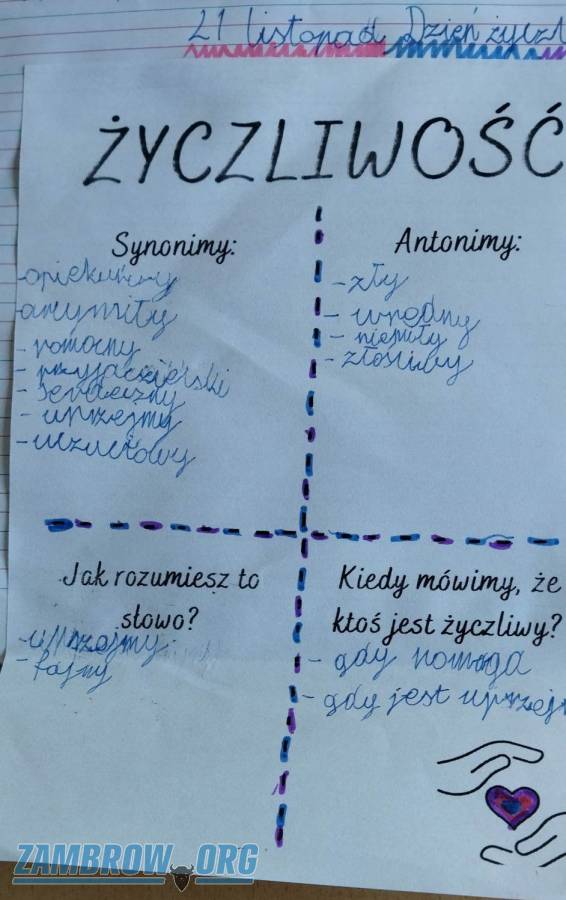 21 listopad Dzień życzl
ŻYCZLIWOŚĆ
Synonimy:
-opiekuńczy
-arcymiły
- pomocny
- przyjacielski
- serdeczny
- uprzejmy
- uczuciowy
Antonimy:
- zły
- wredny
- niemiły
- złośliwy
Jak rozumiesz to
słowo?
- uprzejmy
- fajny
Kiedy mówimy, że
ktoś jest życzliwy?
- gdy pomaga
- gdy jest uprzej
ZAMBROW.ORG